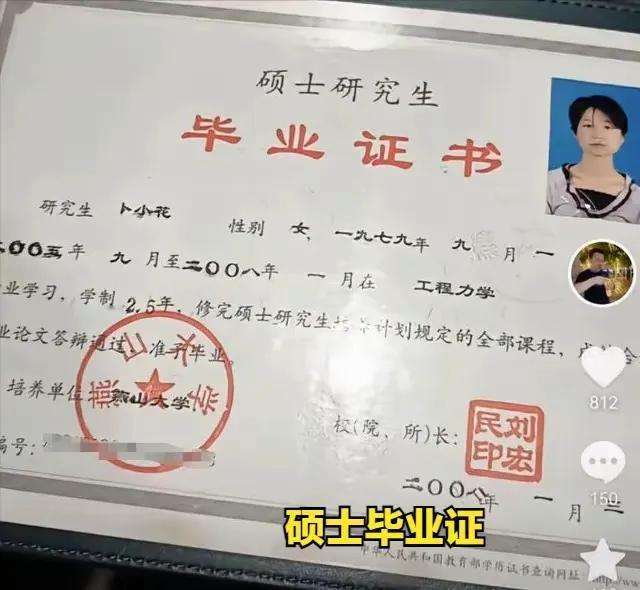 硕士研究生
毕业证书
研究生 卜小花 性别 女，一九七九年 九 月 一
二〇〇五年 九 月至二〇〇八年 一 月在 工程力学
业学习，学制 2.5年，修完硕士研究生培养计划规定的全部课程，成绩合
业论文答辩通过，准予毕业。
培养单位 燕山大学
燕山大学
校(院、所)长：
刘宏民印
编号：
二〇〇八年 一 月 二
硕士毕业证
中华人民共和国教育部学历证书查询网址：http://www
812
150